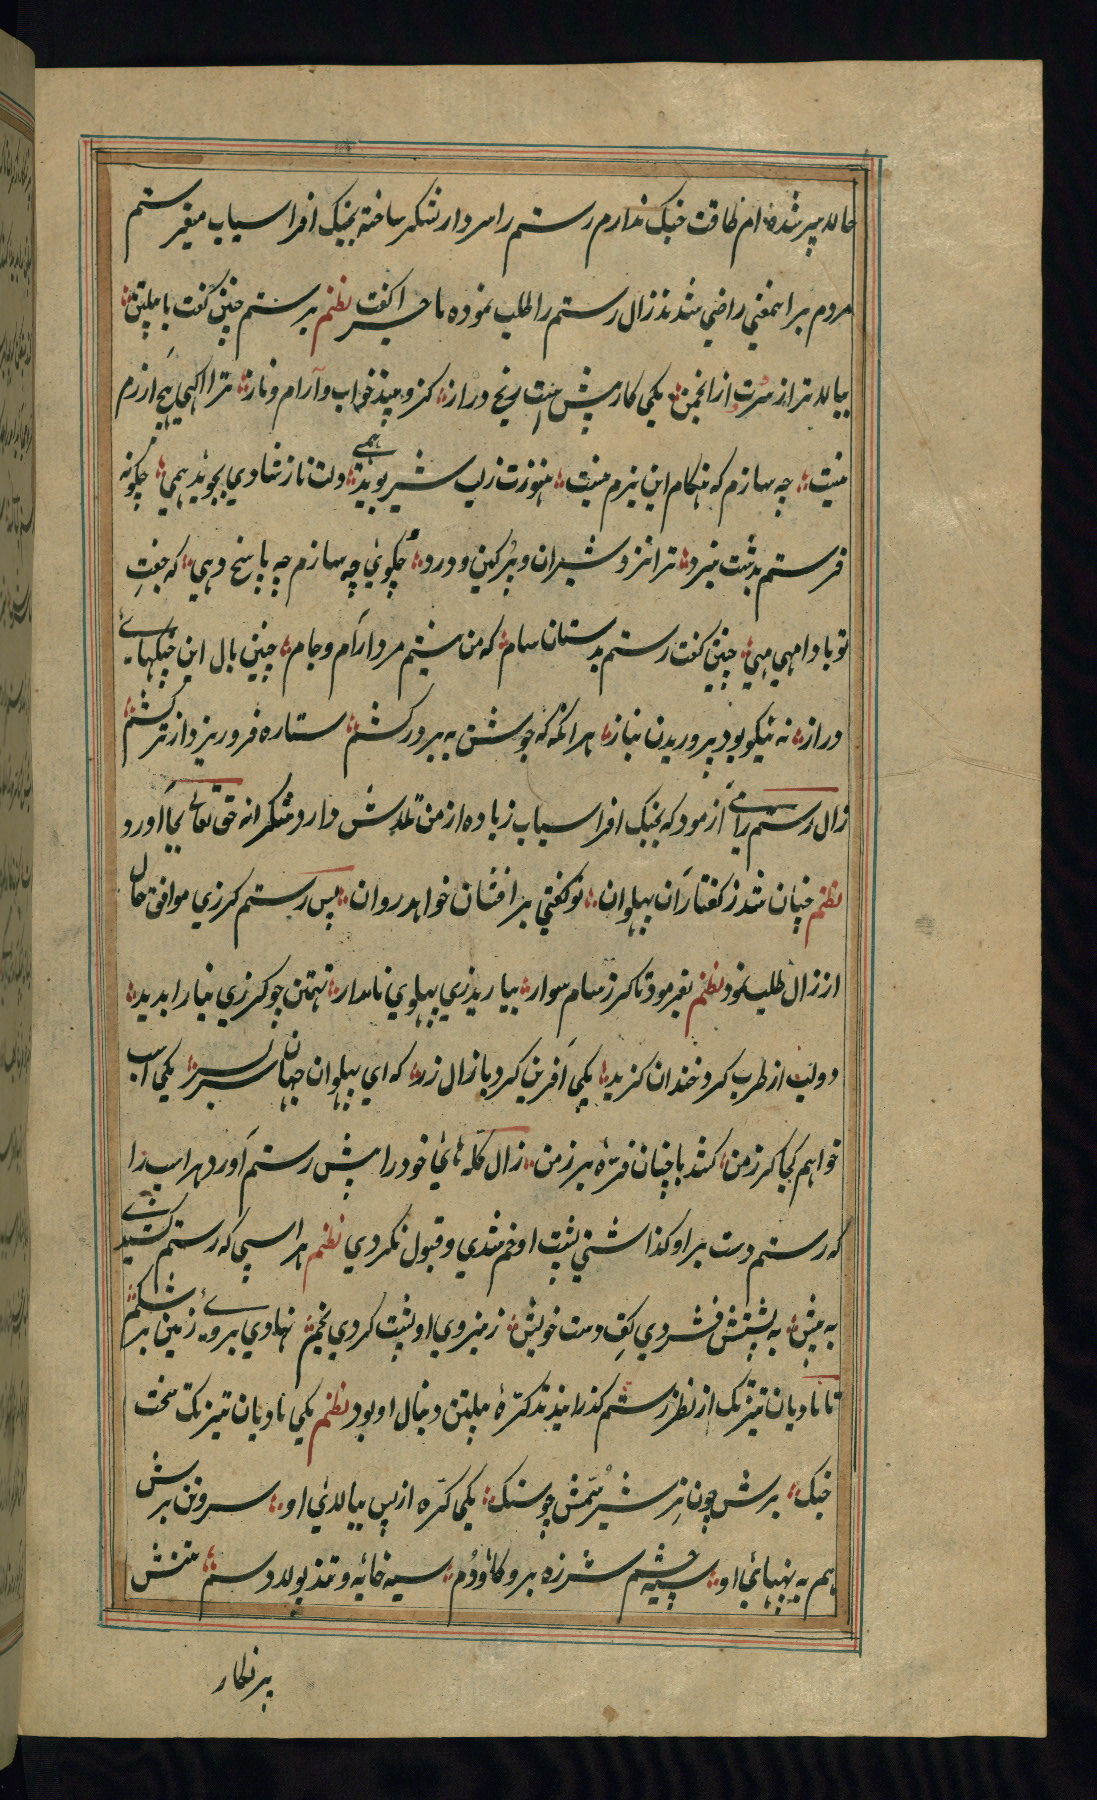 حالا پیر شده ام طاقت جنگ ندارم رستم را سردار لشکر ساخته بجنگ افراسیاب میفرستم
مردم برا ینمعنی راضی شدند زال رستم را طلب نموده ماجرا گفت نظم برستم چنین گفت با پیلتن
ببالا تر از سرت از انجمن یکی کار پیش است رنج دراز کزو بیند خواب و آرام و ناز ترا اگهی هیچ از رزم
نیست چه سازم که هنگام این بزم نیست هنوزت ز لب شیر بوید همی دلت ناز شادی بجوید همی چگونه
فرستم بدشت نبرد ترا نزد شیران و پُر کین و درد چگوئی چه سازم چه پاسخ دهی که جفتِ
تو بادا مهی بهی چنین گفت رستم بدستان سام که من نیستم مرد آرام و جام چنین بال این چنگهای
دراز نه نیکو بود پروریدن بناز هرانگه که جوشن به بر درکشم ستاره فرو ریزد از ترکشم
زال رستم را می آزمود که بجنگ افراسیاب زیاده از من تلاش دارد شکرانه حق تعالی بجا آورد
نظم چنان شد ز گفتار آن پهلوان تو گفتی برافشان خواهد روان پس رستم گرزی موافق حال
از زال طلب نمود نظم بفرمود تا گرز سام سوار بیارید زی پهلوی نامدار تهمتن چو گرزی نیا را بدید
دو لب از طرب کرد خندان گزید یکی آفرین کرد با زال زر که ای پهلوان جهان سربسر یکی اسب
خواهم کجا گرز من کشد با چنان فرّه برز من زال گله های خود را پیش رستم آورد هر اسب را
که رستم دست بر او گذاشتی پشت او خم شدی و قبول نکردی نظم هر اسپی که رستم کشیدی
به پیش به پشتش فشردی کفِ دست خویش ز نیروی او پشت کردی بخم نهادی بروی زمین بر شکم
تا مادیان تیزتک از نظر رستم گذرانیدند کرّهٔ پیلتن دنبال او بود نظم یکی مادیان تیزتک سخت
خنگ برش چون نرِ شیر سُمّش چو سنگ یکی کرّه از پس ببالای او سرون برش
هم به پهنای او سیه چشم شرزه برو گاو دُم سیه خایه و تند پولاد سم تنش
پر نگار